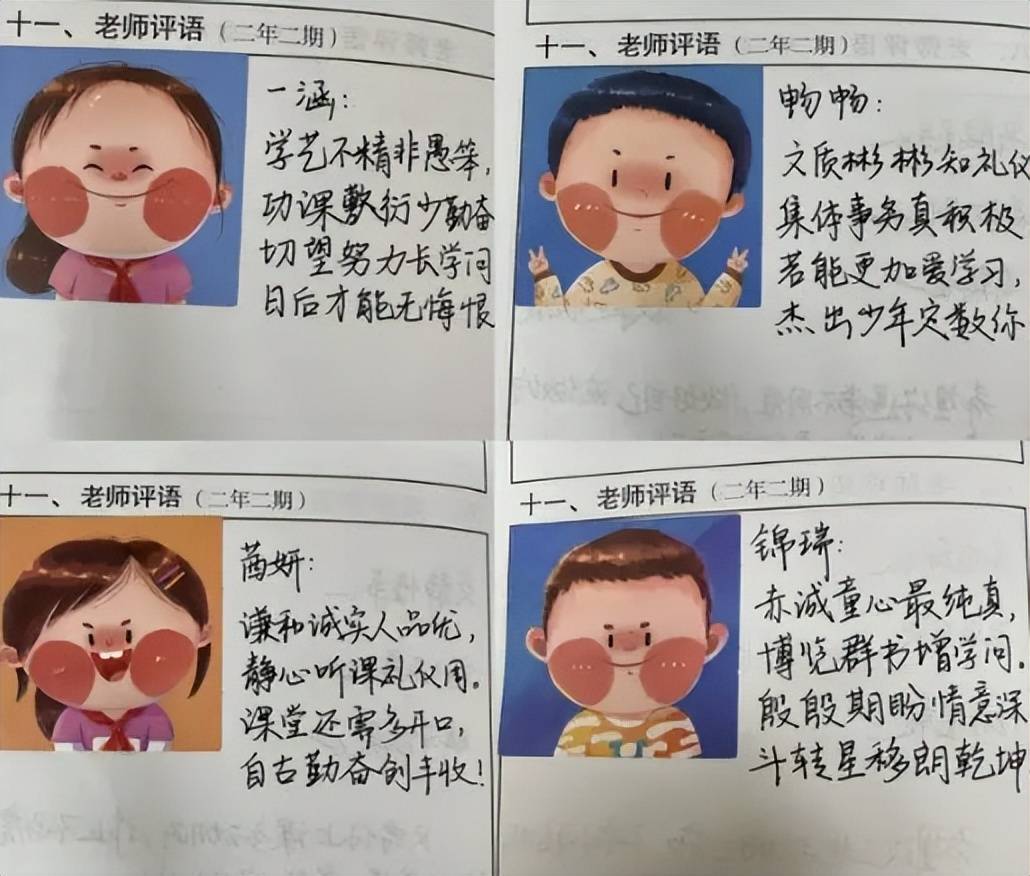 十一、老师评语(二年二期)
一涵:
学艺不精非愚笨,
功课敷衍少勤奋
切望努力长学问
日后才能无悔恨
十一、老师评语(二年二期)
畅畅:
文质彬彬知礼仪
集体事务真积极
若能更加爱学习,
杰出少年定数你
十一、老师评语(二年二期)
茜妍:
谦和诚实人品优,
静心听课礼仪周。
课堂还需多开口,
自古勤奋创丰收!
十一、老师评语(二年二期)
锦瑞:
赤诚童心最纯真,
博览群书增学问。
殷殷期盼情意深
斗转星移朗乾坤